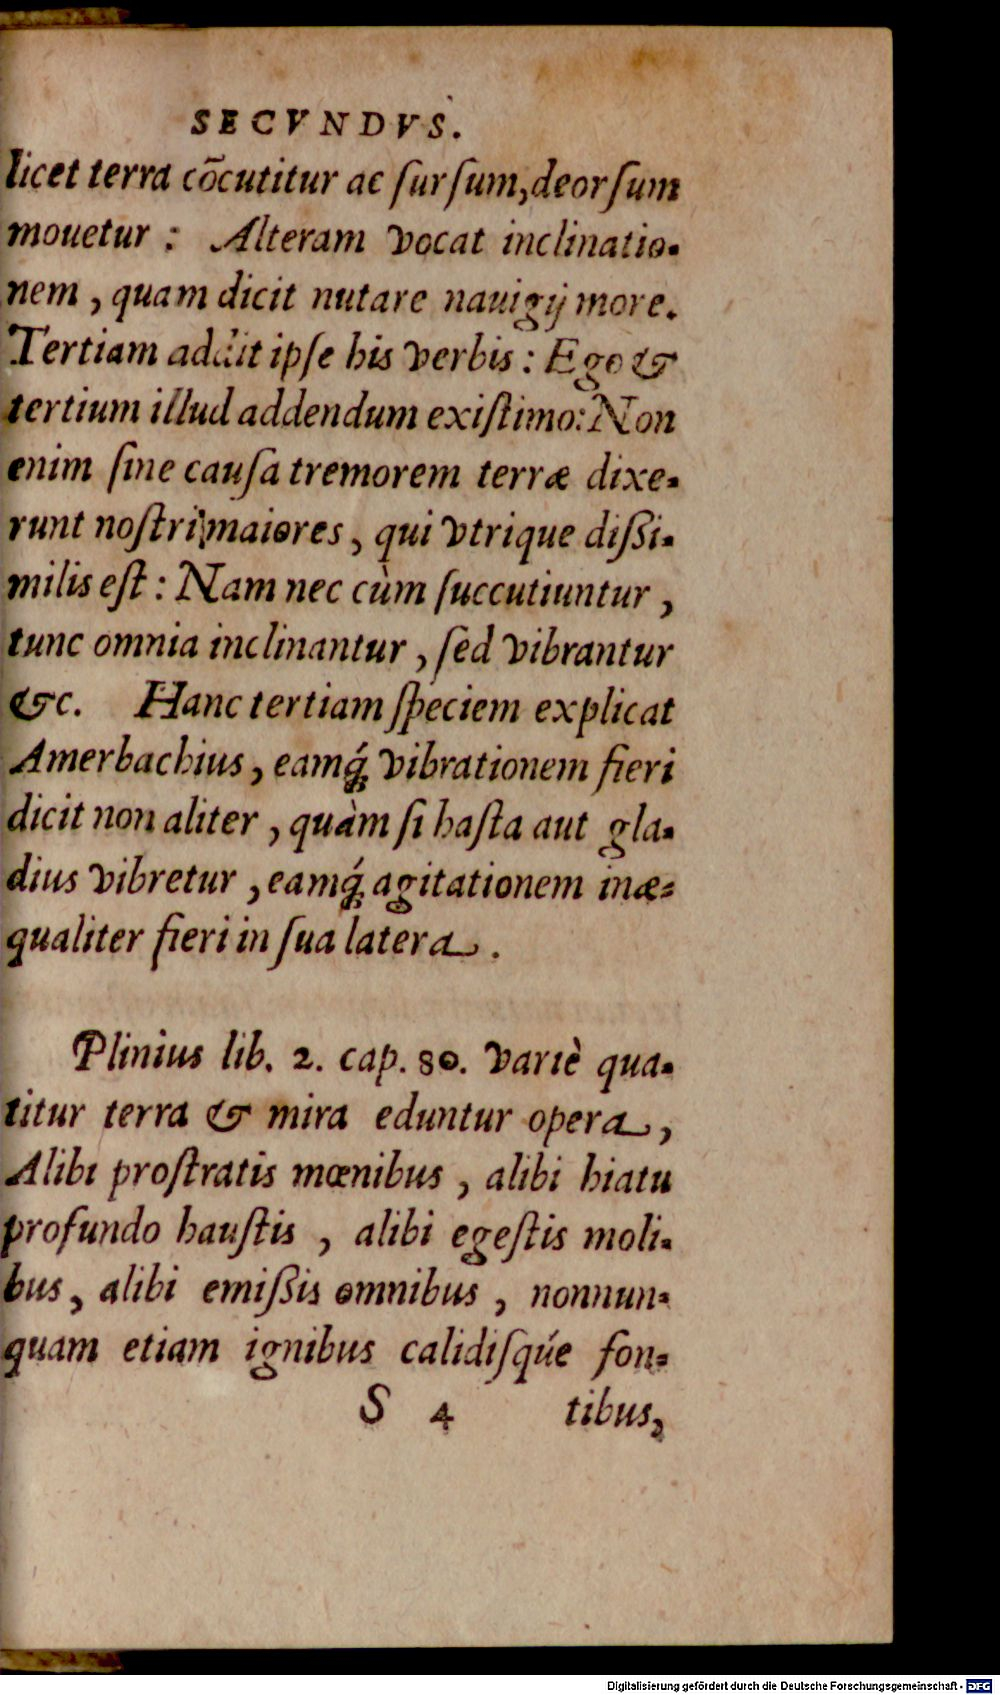 SECVNDVS.
licet terra cõcutitur ac ſurſum, deorſum
mouetur : Alteram vocat inclinatio-
nem , quam dicit nutare nauigij more.
Tertiam addit ipſe his verbis : Ego &
tertium illud addendum exiſtimo: Non
enim ſine cauſa tremorem terræ dixe-
runt noſtri maiores , qui vtrique dißi-
milis eſt : Nam nec cùm ſuccutiuntur ,
tunc omnia inclinantur , ſed vibrantur
&c. Hanc tertiam ſpeciem explicat
Amerbachius , eamq́; vibrationem fieri
dicit non aliter , quàm ſi haſta aut gla-
dius vibretur , eamq́; agitationem inæ-
qualiter fieri in ſua latera .
Plinius lib. 2. cap. 80. Variè qua-
titur terra & mira eduntur opera ,
Alibi proſtratis mœnibus , alibi hiatu
profundo hauſtis , alibi egeſtis moli-
bus , alibi emißis omnibus , nonnun-
quam etiam ignibus calidiſqúe fon-
S 4 tibus,
Digitalisierung gefördert durch die Deutsche Forschungsgemeinschaft - DFG